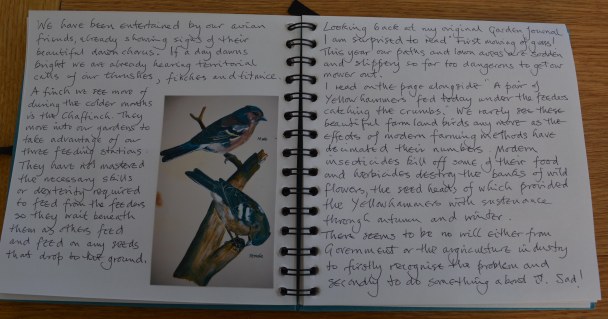 We have been entertained by our avian
friends, already showing signs of their
beautiful dawn chorus. If a day dawns
bright we are already hearing territorial
calls of our thrushes, finches and titance.
A finch we see more of
during the colder months
is the Chaffinch. They
move into our gardens to
take advantage of our
three feeding stations.
They have not mastered
the necessary skills
or dexterity required
to feed from the feeders
so they wait beneath
them as others feed
and feed on any seeds
that drop to the ground.
Male
Female
Looking back at my original Garden Journal
I am surprised to read 'First mowing of grass!'
This year our paths and lawn areas are sodden
and slippery so far too dangerous to get our
mower out.
I read on the page alongside 'A pair of
Yellowhammers fed today under the feeders
catching the crumbs. We rarely see these
beautiful farmland birds any more as the
effects of modern farming methods have
decimated their numbers. Modern
insecticides kill off some of their food
and herbicides destroy the banks of wild
flowers, the seed heads of which provided
the Yellowhammers with sustenance
through autumn and winter.
There seems to be no will either from
Government or the agriculture industry
to firstly recognise the problem and
secondly to do something about it. Sad!